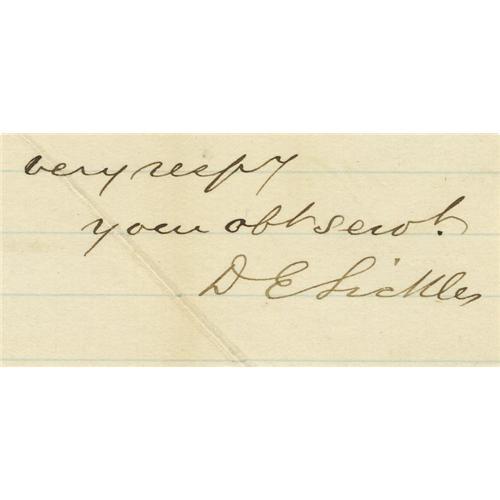 very respy
your obt servt.
D E Sickles